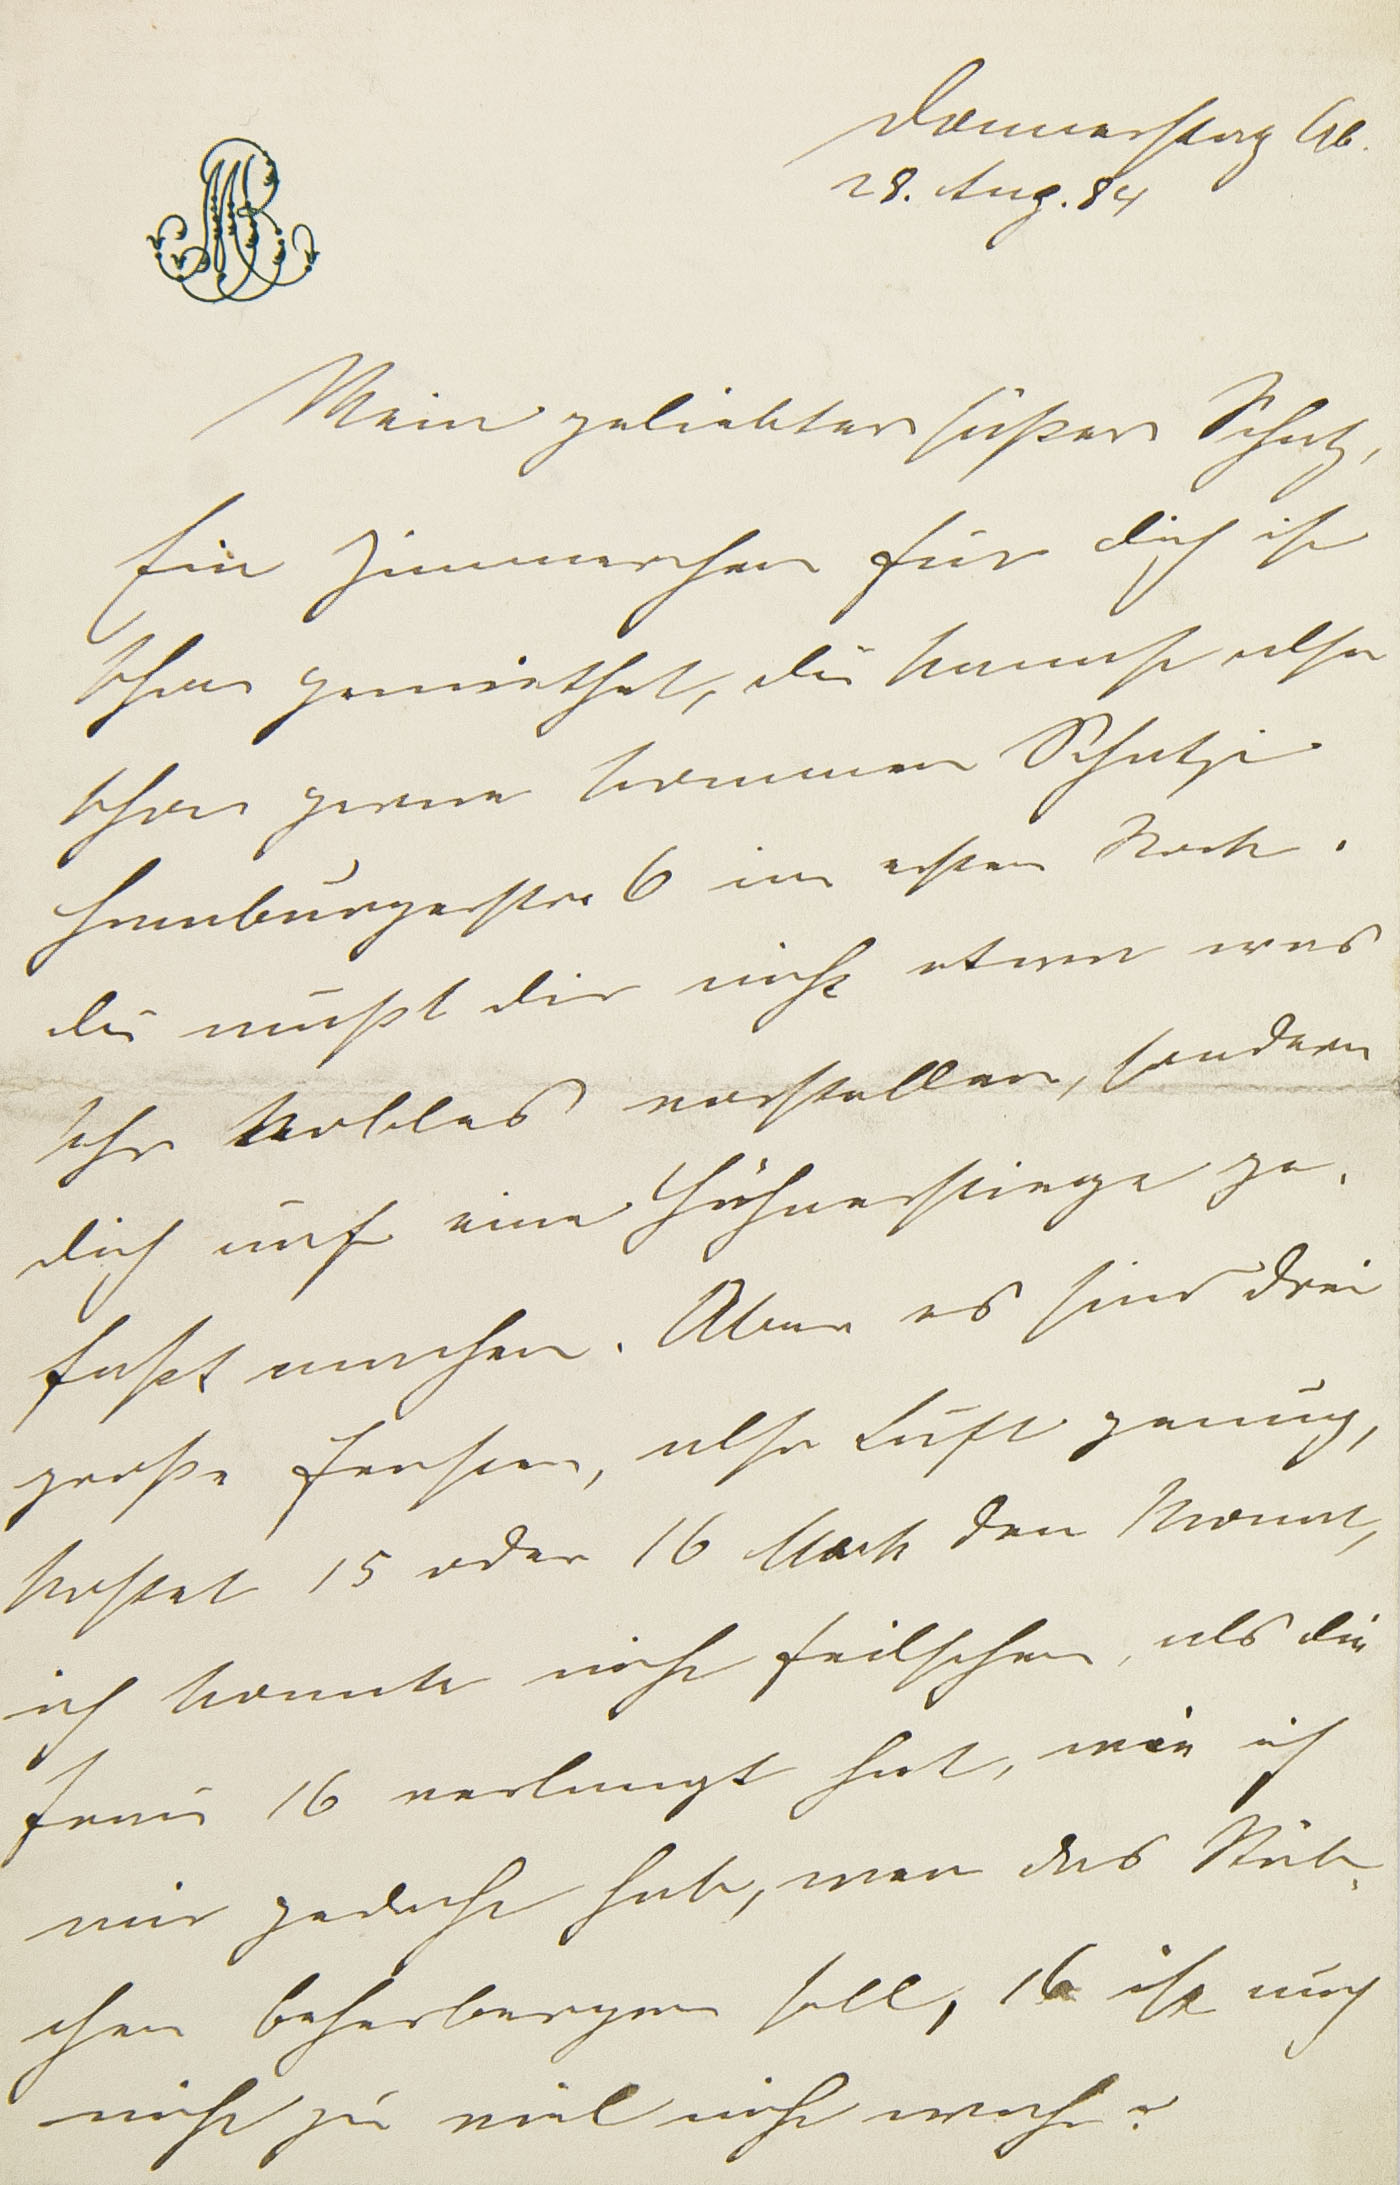 MB
Donnerstag Ab.
28. Aug. 84
Mein geliebter süßer Schatz,
Ein Zimmerchen für dich ist
schon gemiethet, du kannst also
schon gerne kommen Schatzi
Hamburgerstr. 6 im ersten Stock.
du mußt dir nicht etwa was
sehr Nobles vorstellen, sondern
dich auf eine Hühnerstiege ge-
faßt machen. Aber es sind drei
große Fenster, also Luft genug,
kostet 15 oder 16 Mark den Monat,
ich konnte nicht feilschen, als die
Frau 16 verlangt hat, wie ich
mir gedacht habe, wen das Stüb-
chen beherbergen soll, 16 ist auch
nicht zu viel nicht wahr?